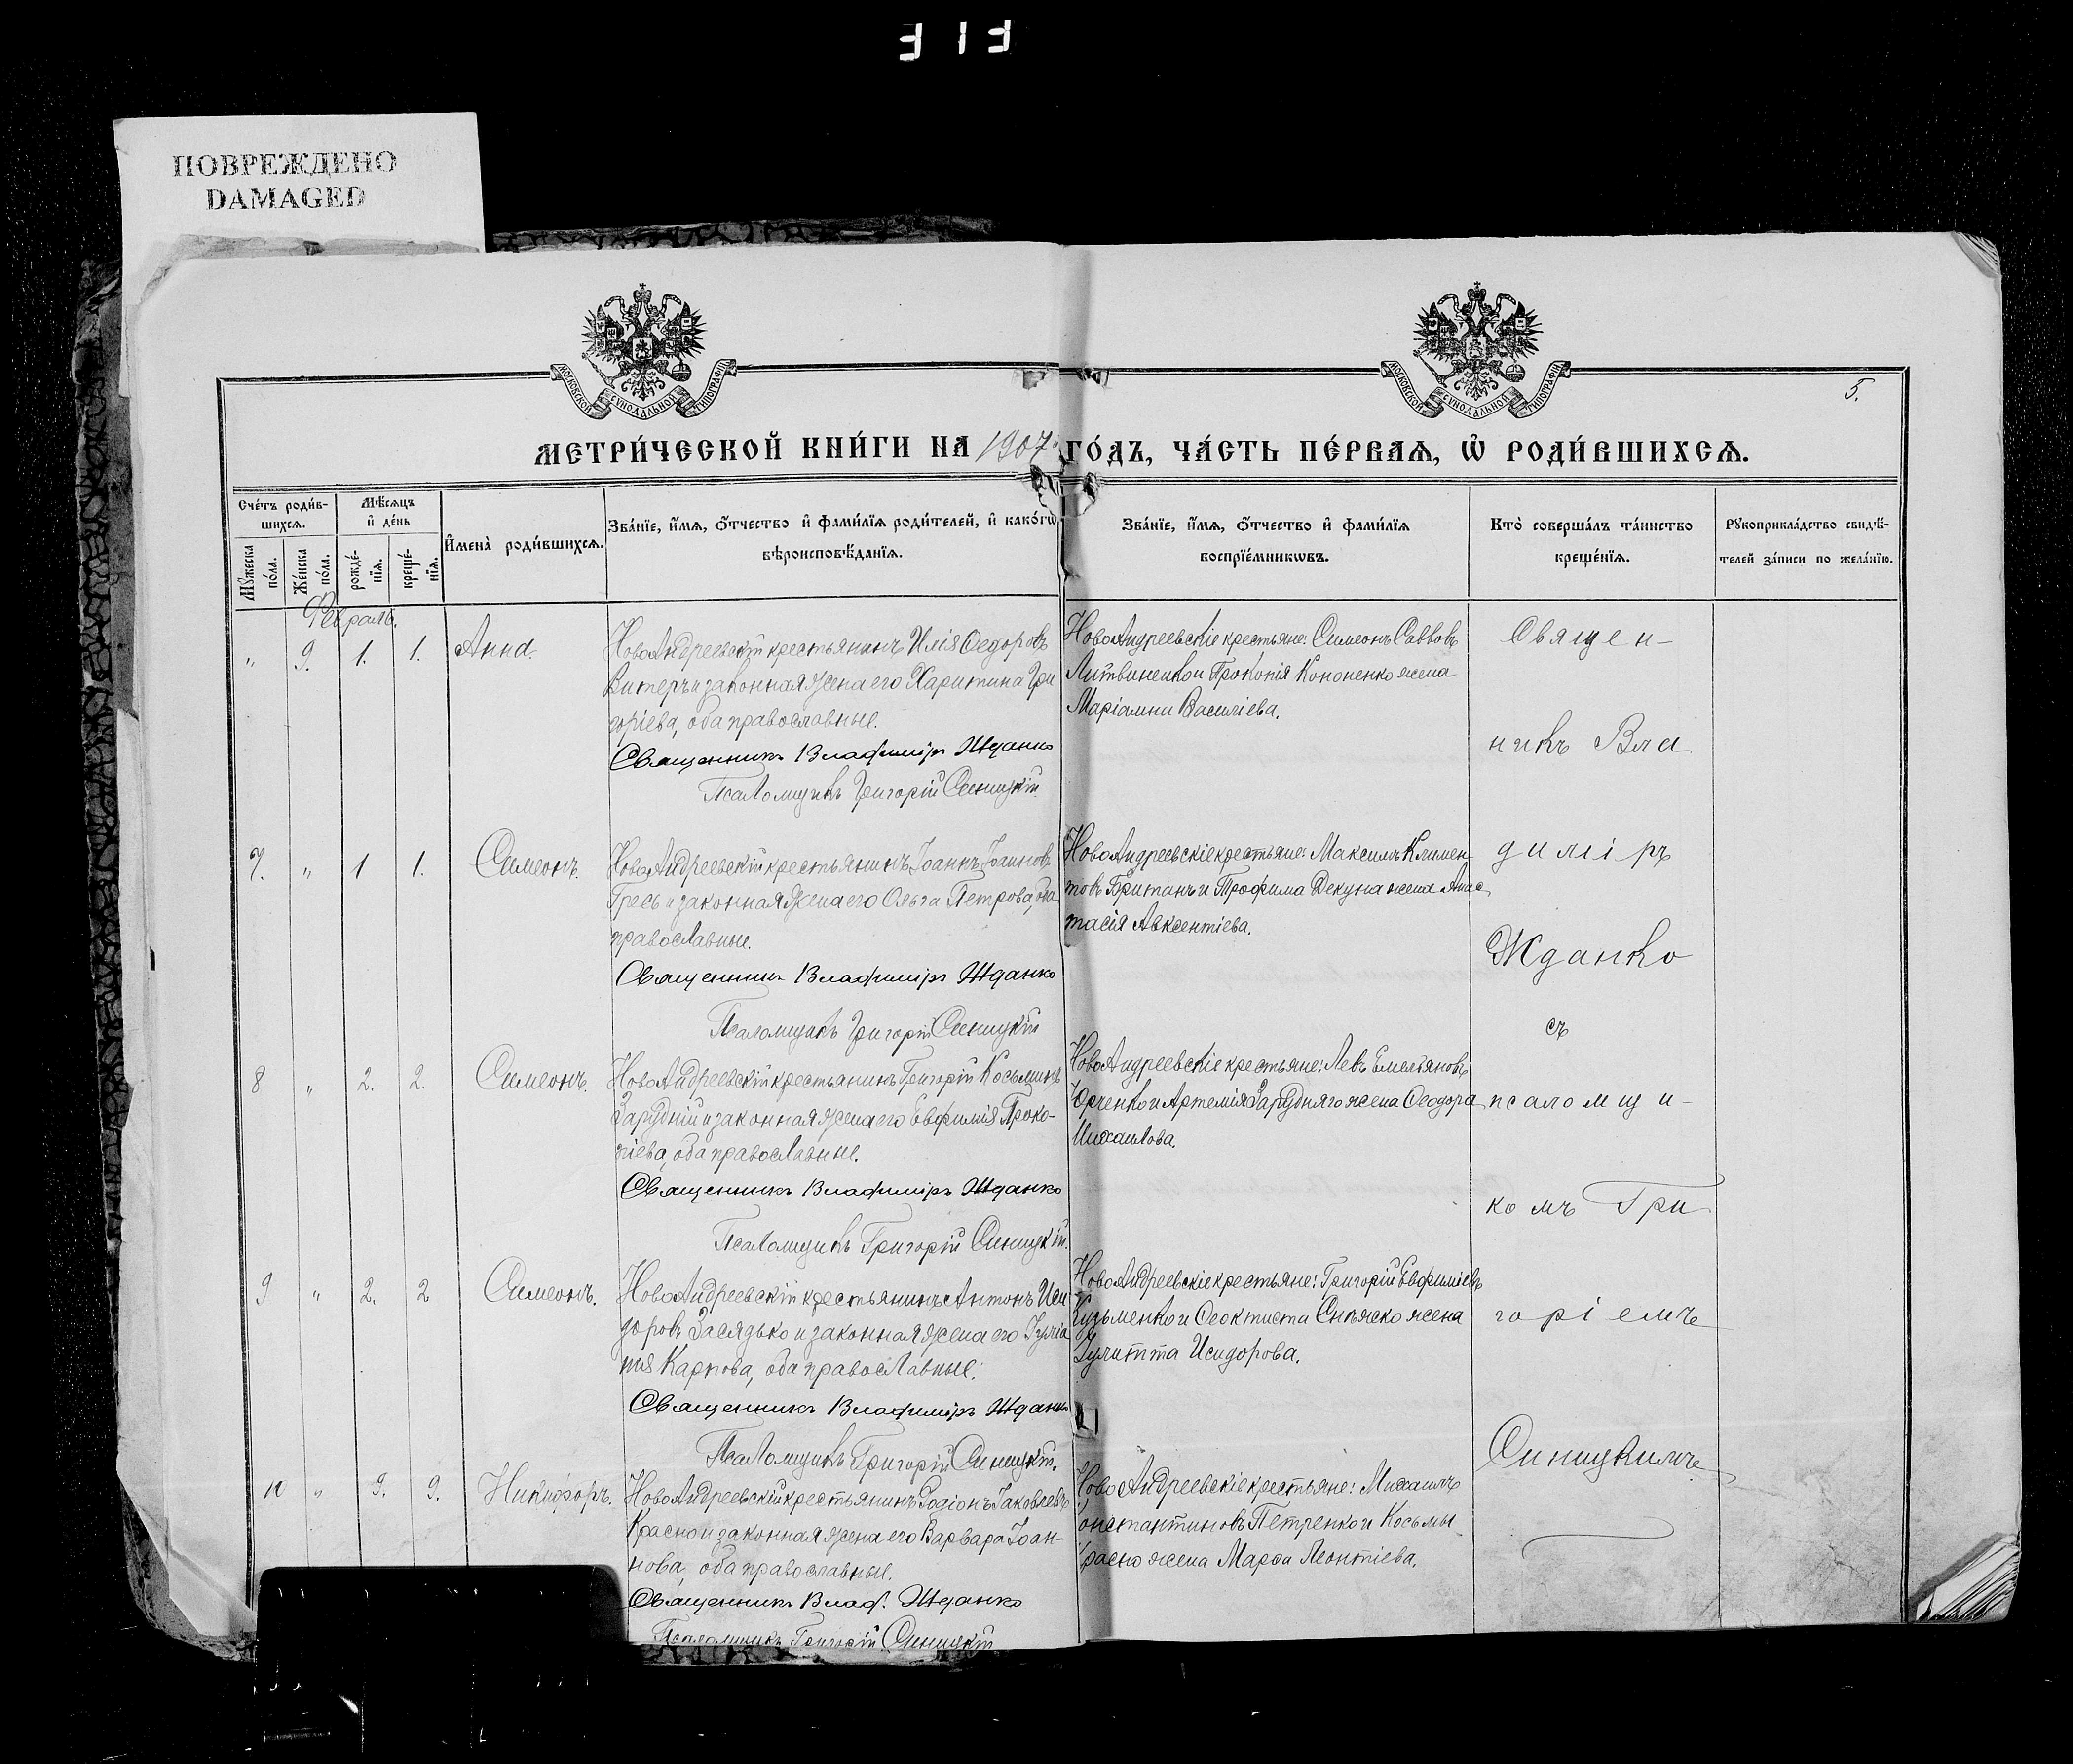 313
ПОВРЕЖДЕНО
DAMAGED
МОСКОВСКОЙ СѴНОДАЛЬНОЙ ТИПОГРАФІИ
МОСКОВСКОЙ СѴНОДАЛЬНОЙ ТИПОГРАФІИ
5.
МЕТРИ́ЧЕСКОЙ КНИ́ГИ НА 1907 ГО́ДЪ, ЧА́СТЬ ПЕ́РВАѦ, Ѡ҆ РОДИ́ВШИХСѦ.
Сче́тъ роди́в-
шихсѧ.
Мꙋ́жеска по́ла.
Же́нска по́ла.
Мѣ́сѧцъ
и҆ де́нь
рожде́-
нїѧ.
креще́-
нїѧ.
И҆мена̀ роди́вшихсѧ.
Зва́нїе, и҆́мѧ, ѻ҆́тчество и҆ фами́лїѧ роди́телей, и҆ како́гѡ
вѣроисповѣ́данїѧ.
Зва́нїе, и҆́мѧ, ѻ҆́тчество и҆ фами́лїѧ
воспрїе́мникѡвъ.
Кто̀ соверша́лъ та́инство
креще́нїѧ.
Рꙋкоприкла́дство свидѣ́-
телей за́писи по жела́нїю.
Февраль.
" 9. 1. 1. Анна.
НовоАндреевскій крестьянинъ Илія Ѳедоровъ
Витеръ и законная жена его Харитина Гри
горіева, оба православные.
Священникъ Владиміръ Жданко
Псаломщикъ Григорій Синицкій
НовоАндреевскіе крестьяне: Симеонъ Саввовъ
Литвиненко и Прокопія Кононенко жена
Маріамна Василіева.
7. " 1 1. Симеонъ.
НовоАндреевскій крестьянинъ Іоаннъ Іоанновъ
Гресь и законная жена его Ольга Петрова, оба
православные.
Священникъ Владиміръ Жданко
Псаломщикъ Григорій Синицкій
НовоАндреевскіе крестьяне: Максимъ Климен
товъ Британъ и Трофима Декуна жена Анас
тасія Авксентіева.
8 " 2. 2. Симеонъ.
НовоАндреевскій крестьянинъ Григорій Косьминъ
Зарудній и законная жена его Евфимія Проко-
піева, оба православные.
Священникъ Владиміръ Жданко
Псаломщикъ Григорій Синицкій.
НовоАндреевскіе крестьяне: Левъ Емельяновъ
Юрченко и Артемія Зарудняго жена Ѳеодора
Михаилова.
9 " 2. 2 Симеонъ.
НовоАндреевскій крестьянинъ Антонъ Иси
доровъ Засядько и законная жена его Іуліа
нія Карпова, оба православные.
Священникъ Владиміръ Жданко
Псаломщикъ Григорій Синицкій.
НовоАндреевскіе крестьяне: Григорій Евфиміевъ
Кузьменко и Ѳеоктиста жена
Іулитта Исидорова.
10 " 9. 9. Никифоръ.
НовоАндреевскій крестьянинъ Родіонъ Іаковлевъ
Красно и законная жена его Варвара Іоан-
нова, оба православные.
Священникъ Влад. Жданко
Псаломщикъ Григорій Синицкій
НовоАндреевскіе крестьяне: Михаилъ
Константиновъ Петренко и Косьмы
Красно жена Марѳа Леонтіева.
Священ-
никъ Вла
диміръ
Жданко
съ
псаломщи-
комъ Гри
горіемъ
Синицкимъ